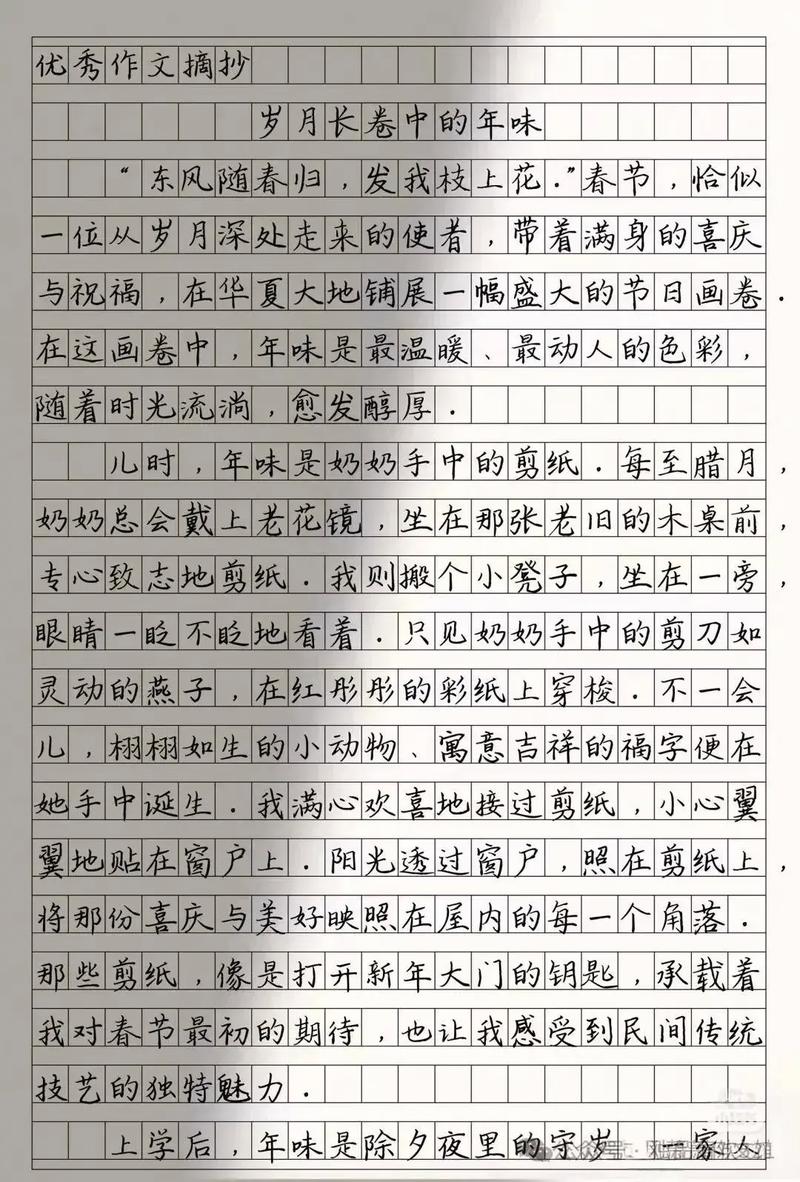 优秀作文摘抄
岁月长卷中的年味
“东风随春归，发我枝上花.”春节，恰似
一位从岁月深处走来的使者，带着满身的喜庆
与祝福，在华夏大地铺展一幅盛大的节日画卷.
在这画卷中，年味是最温暖、最动人的色彩，
随着时光流淌，愈发醇厚.
儿时，年味是奶奶手中的剪纸.每至腊月，
奶奶总会戴上老花镜，坐在那张老旧的木桌前，
专心致志地剪纸.我则搬个小凳子，坐在一旁，
眼睛一眨不眨地看着.只见奶奶手中的剪刀如
灵动的燕子，在红彤彤的彩纸上穿梭.不一会
儿，栩栩如生的小动物、寓意吉祥的福字便在
她手中诞生.我满心欢喜地接过剪纸，小心翼
翼地贴在窗户上.阳光透过窗户，照在剪纸上，
将那份喜庆与美好映照在屋内的每一个角落.
那些剪纸，像是打开新年大门的钥匙，承载着
我对春节最初的期待，也让我感受到民间传统
技艺的独特魅力.
上学后，年味是除夕夜里的守岁.一家人
公众号·